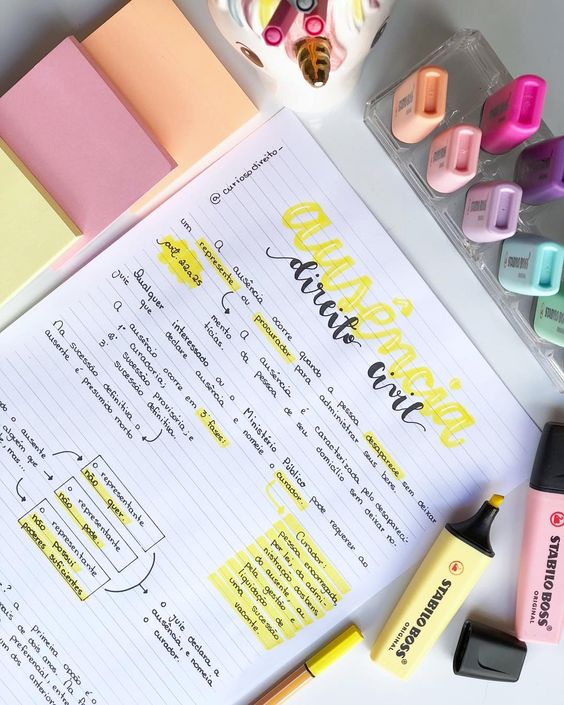 @curiosodireito_
ausência
direito civil
A ausência ocorre quando a pessoa desaparece sem deixar
um represente ou procurador para administrar seus bens.
art. 22a25
A ausência é caracterizada pelo desapareci-
mento da pessoa de seu domicílio sem deixar no-
tícias.
Qualquer interessado ou o Ministério Público pode requerer ao
juiz que declare ausência e nomeie o curador.
A ausência ocorre em 3 fases:
1ª curadoria;
2ª sucessão provisória; e
3ª sucessão definitiva.
Na sucessão definitiva o
ausente é presumido morto
Curador:
pessoa encarregada,
por lei, da admi-
nistração dos bens
do ausente, ou
pela gestão e
liquidação de
uma sucessão
vacante.
o ausente
alguém que
mas...
o representante
não quer.
o representante
não pode.
o representante
não possui
poderes suficientes.
o juiz declara a
ausência, e nomeia
o curador.
a primeira opção é o
de dois anos.
preferencial, entre
dos
STABILO BOSS
ORIGINAL
STABILO BOSS
ORIGINAL